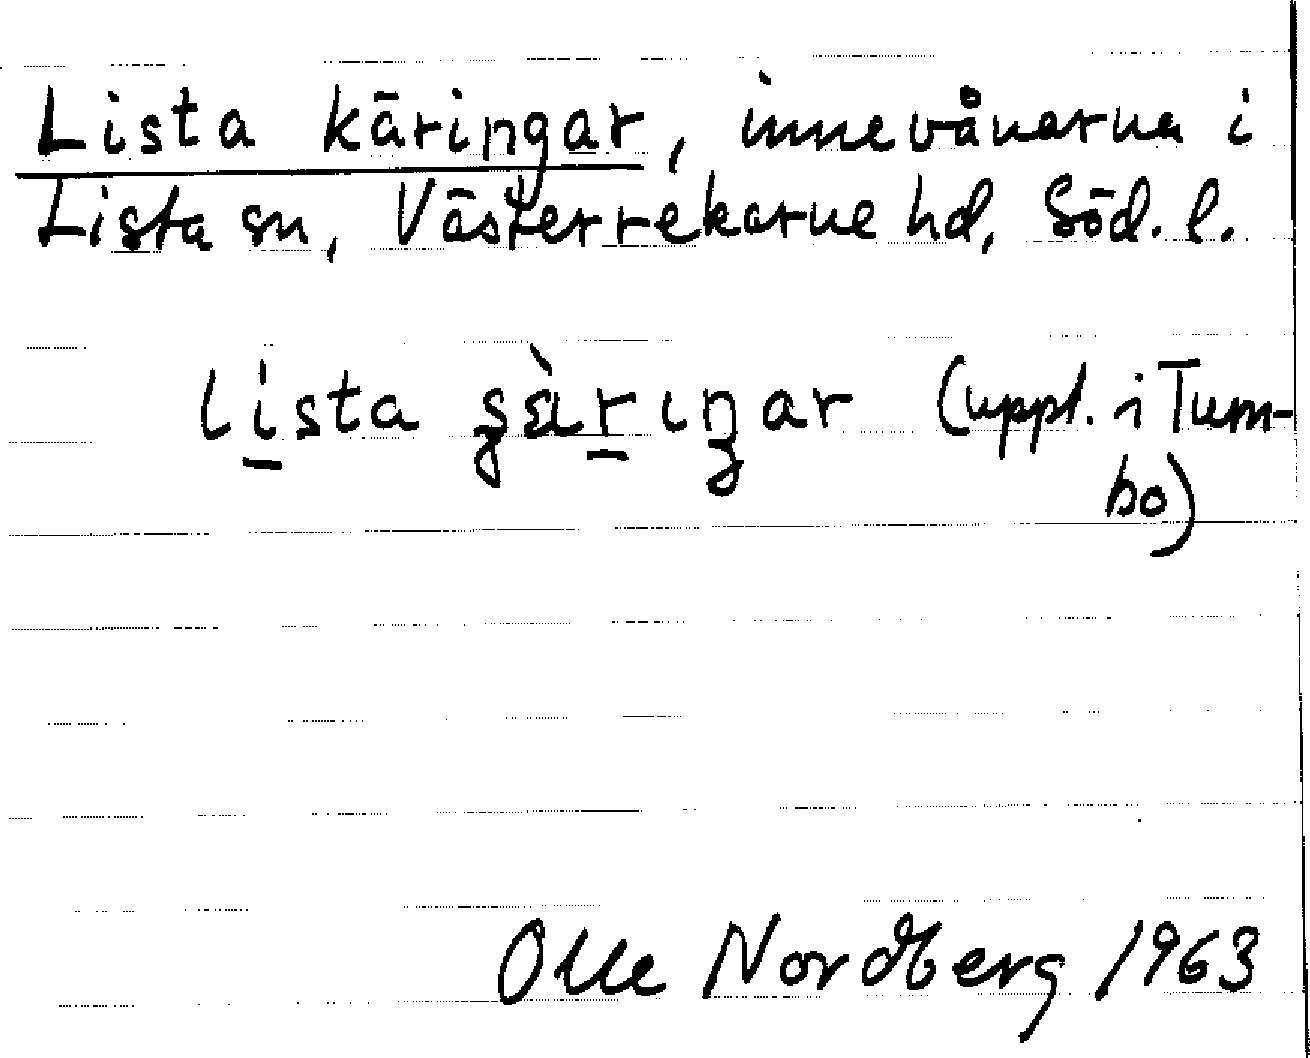 Lista käringar, innevånarna i
Lista sn, Västerrekarne hd, Söd. l.
lista (uppl. i Tum-
bo)
Olle Nordberg 1963